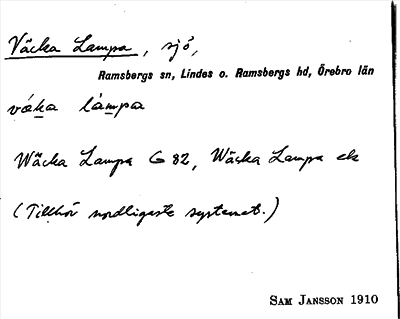 Väcka Lampa, sjö,
Ramsbergs sn, Lindes o. Ramsbergs hd, Örebro län
våka lampa
Wäcka Lampa G 82, Wäcka Lampa ek
(Tillhör nordligaste systemet.)
SAM JANSSON 1910